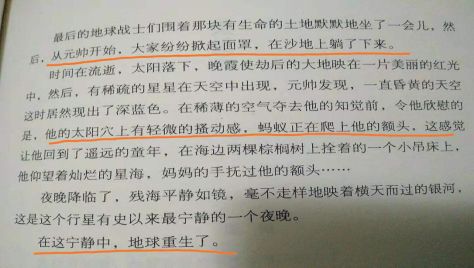 最后的地球战士们围着那块有生命的土地默默地坐了一会儿，然
后，从元帅开始，大家纷纷掀起面罩，在沙地上躺了下来。
时间在流逝，太阳落下，晚霞使劫后的大地映在一片美丽的红光
中，然后，有稀疏的星星在天空中出现，元帅发现，一直昏黄的天空
这时居然现出了深蓝色。在稀薄的空气夺去他的知觉前，令他欣慰的
是，他的太阳穴上有轻微的搔动感，蚂蚁正在爬上他的额头，这感觉
让他回到了遥远的童年，在海边两棵棕榈树上拴着的一个小吊床上，
他仰望着灿烂的星海，妈妈的手抚过他的额头……
夜晚降临了，残海平静如镜，毫不走样地映着横天而过的银河，
这是这个行星有史以来最宁静的一个夜晚。
在这宁静中，地球重生了。